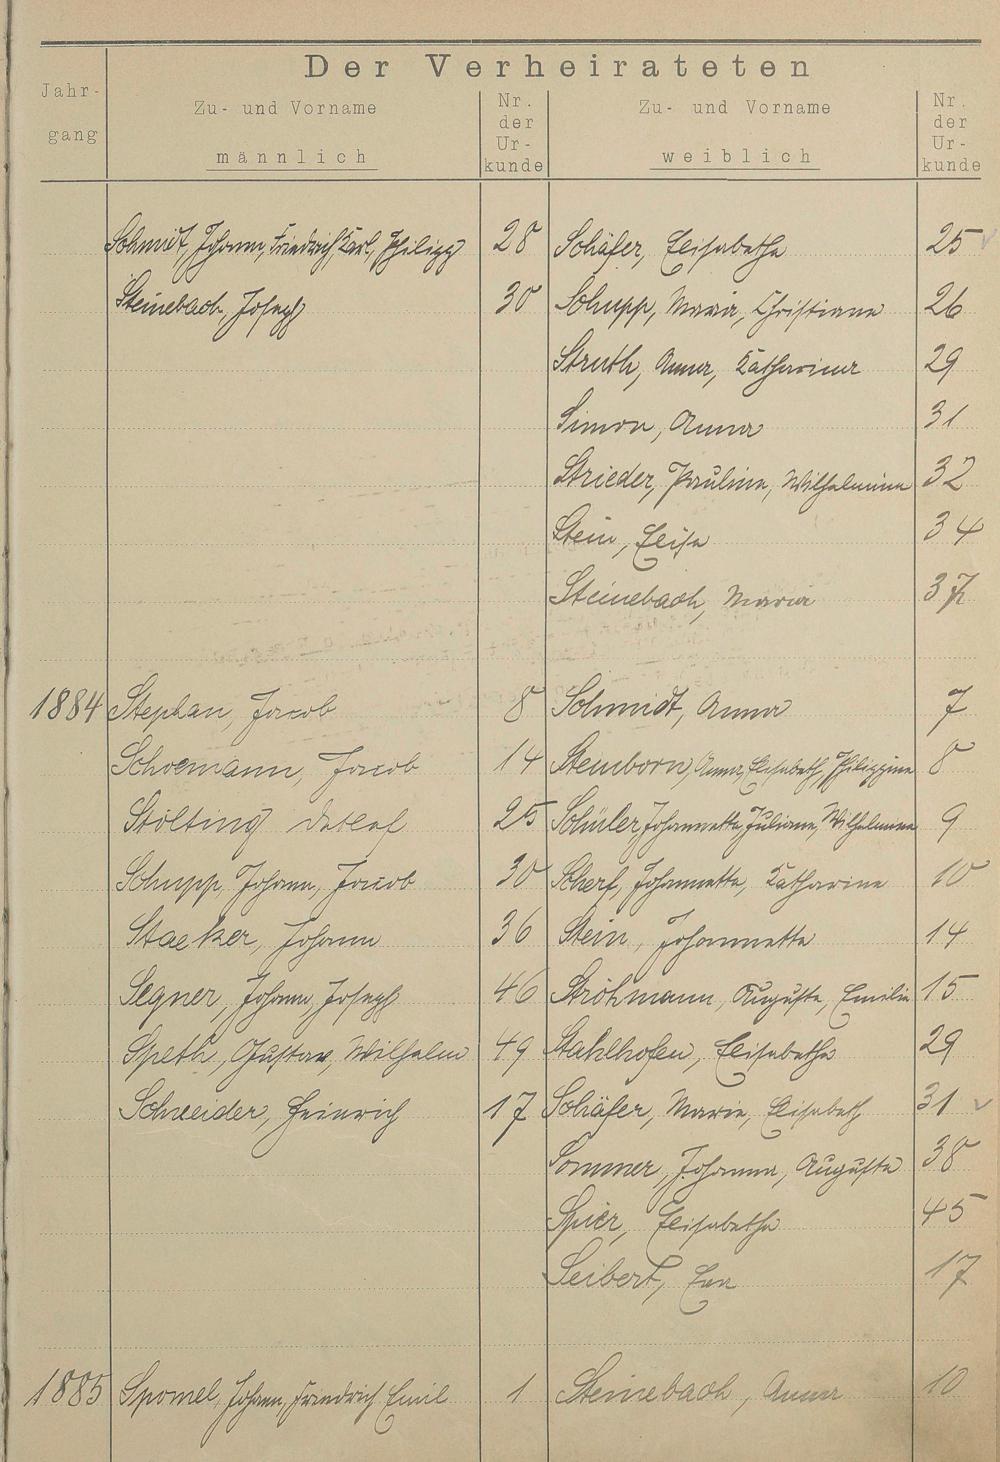 Der Verheirateten
Jahr-gang | Zu- und Vorname männlich | Nr. der Ur-kunde | Zu- und Vorname weiblich | Nr. der Ur-kunde
Schmidt, Johann, Friedrich Karl, Philipp 28 Schäfer, Elisabetha 25
Steinebach, Joseph 30 Schupp, Maria, Christiane 26
Struth, Anna, Katharina 29
Simon, Anna 31
Strieder, Pauline, Wilhelmine 32
Stein, Elisa 34
Steinebach, Maria 37
1884 Stephan, Jacob 8 Schmidt, Anna 7
Schoemann, Jacob 14 Steinborn, Anna, Elisabeth, Philippine 8
Stölting Detlef 25 Schüler, Johannetta, Juliane, Wilhelmine 9
Schupp, Johann, Jacob 30 Scherf, Johannetta, Katharine 10
Staeker, Johann 36 Stein, Johannetta 14
Segner, Johann, Joseph 46 Ströhmann, Auguste, Emilie 15
Speth, Gustav, Wilhelm 49 Stahlhofen, Elisabetha 29
Schneider, Heinrich 17 Schäfer, Marie, Elisabeth 31
Sommer, Johanna, Auguste 38
Spier, Elisabetha 45
Seibert, Eva 17
1885 Spomel, Johann, Friedrich Emil 1 Steinebach, Anna 10